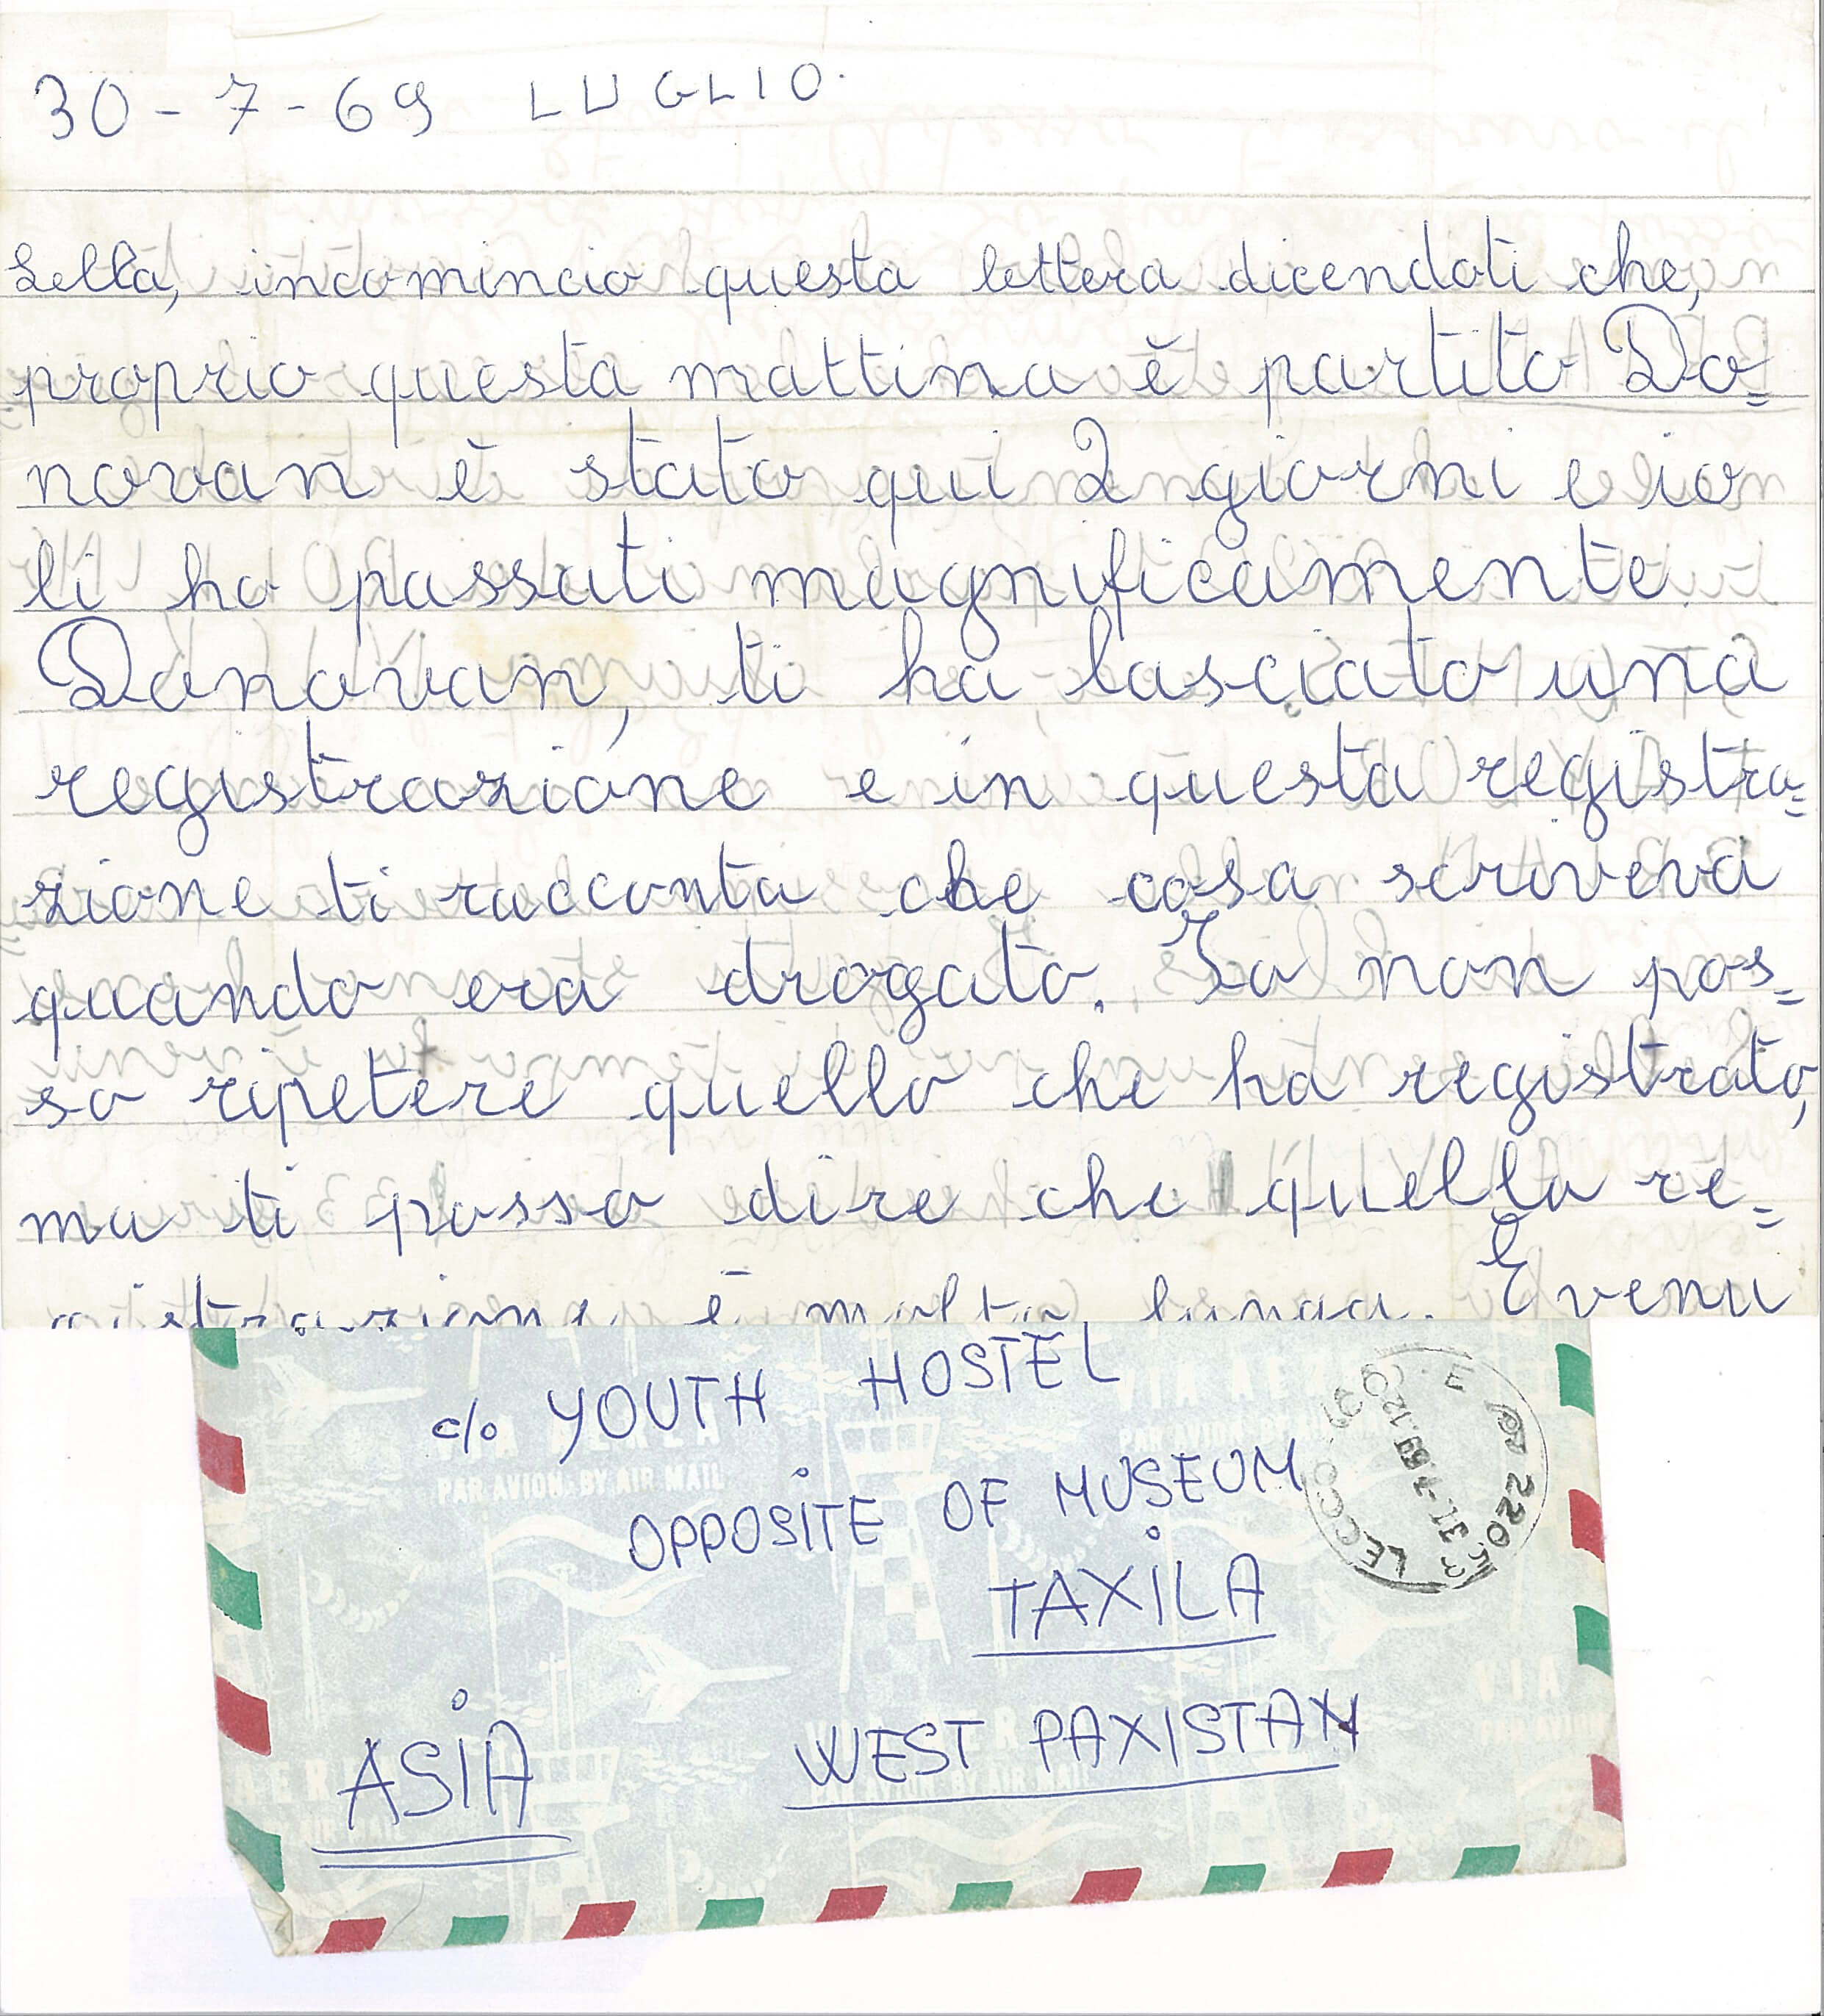 30-7-69 LUGLIO.
Lella, incomincio questa lettera dicendoti che,
proprio questa mattina è partito Do=
novan è stato qui 2 giorni e io
li ho passati magnificamente.
Donovan, ti ha lasciato una
registrazione e in questa registra=
zione ti racconta che cosa scriveva
quando era drogato. Io non pos=
so ripetere quello che ha registrato,
ma ti posso dire che quella re=
gistrazione è molto lunga. E venu
c/o YOUTH HOSTEL
OPPOSITE OF MUSEUM
TAXILA
ASIA WEST PAXISTAN
VIA AEREA
PAR AVION-BY AIR MAIL
LECCO
31.-7.69.12
22053